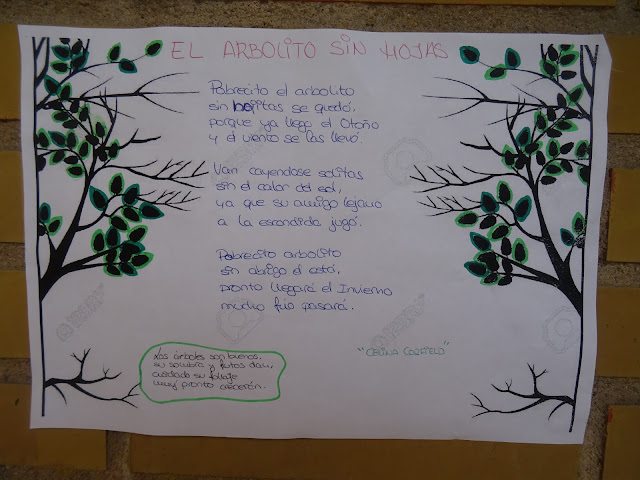 EL ARBOLITO SIN HOJAS
Pobrecito el arbolito
sin hojitas se quedó,
porque ya llego el Otoño
y el viento se las llevó.
Van cayendose solitas
sin el calor del sol,
ya que su amigo lejano
a la escondida jugó.
Pobrecito arbolito
sin abrigo él está,
pronto llegará el Invierno
mucho frio pasará.
Los árboles son buenos.
su sombra y frutos dan,
cuidado su follaje
muy pronto crecerán.